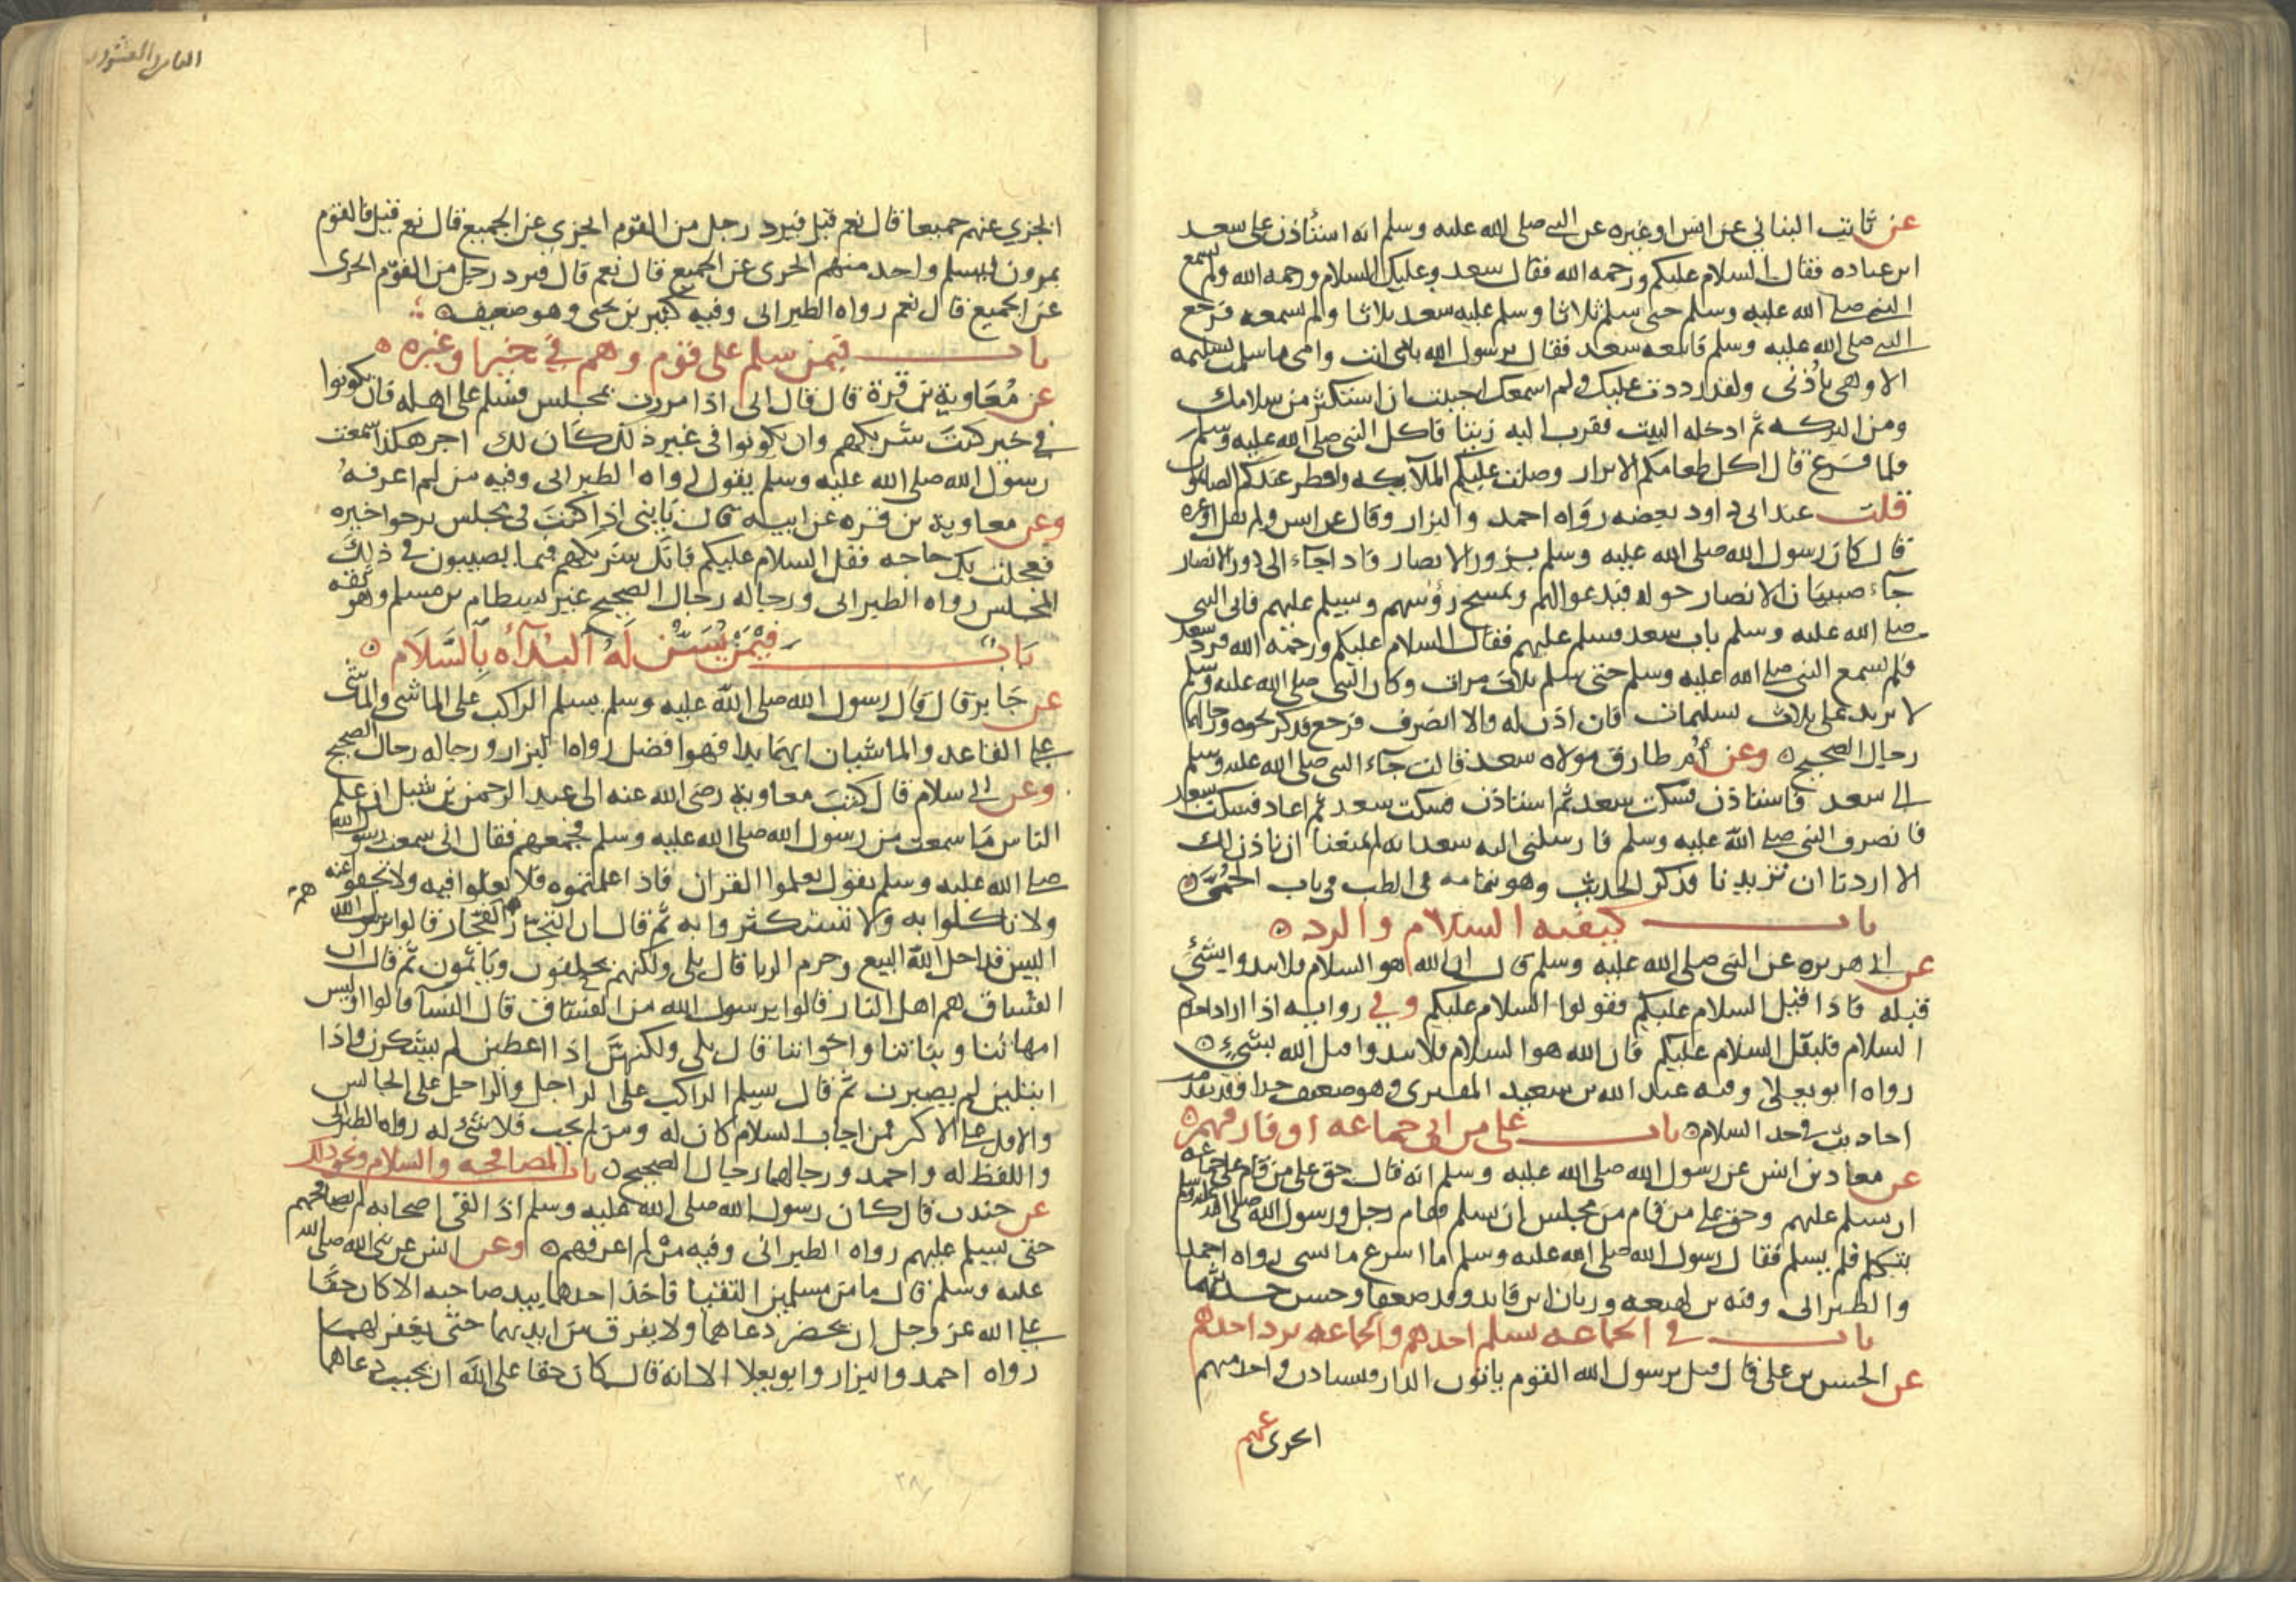 عن ثابت البناني عن انس او غيره عن النبي صلى الله عليه وسلم انه استأذن على سعد
ابن عباده فقال السلام عليكم ورحمه الله فقال سعد وعليك السلام ورحمه الله ولم يسمع
النبي صلى الله عليه وسلم حتى سلم ثلاثا وسلم عليه سعد ثلاثا ولم سمعه فرجع
النبي صلى الله عليه وسلم فاتبعه سعد فقال يرسول الله بابي انت وامي ما سلمت تسليمه
الا وهي باذني ولقد رددت عليك ولم اسمعك احببت ان استكثر من سلامك
ومن البركه ثم ادخله البيت فقرب اليه زبيبا فاكل النبي صلى الله عليه وسلم
فلما فرغ قال اكل طعامكم الابرار وصلت عليكم الملآيكه وافطر عندكم الصايمون
قلت عند ابي داود بعضه رواه احمد والبزار وقال عن انس ولم يقل او غيره
قال كان رسول الله صلى الله عليه وسلم يزور الانصار فاذا جاء الى دور الانصار
جآء صبيان الانصار حوله فيدعو لهم ويمسح رؤسهم ويسلم عليهم فاتى النبي
صلى الله عليه وسلم باب سعد فسلم عليهم فقال السلام عليكم ورحمه الله فرد سعد
فلم يسمع النبي صلى الله عليه وسلم حتى سلم ثلاث مرات وكان النبي صلى الله عليه وسلم
لا يزيد على ثلاث تسليمات فان اذن له والا انصرف فرجع فذكر نحوه ورجالهما
رجال الصحيح وعن ام طارق مولاه سعد قالت جآء النبي صلى الله عليه وسلم
الى سعد فاستاذن فسكت سعد ثم استاذن فسكت سعد ثم اعاد فسكت سعد
فانصرف النبي صلى الله عليه وسلم فارسلني اليه سعد انه لم يمنعنا ان ناذن لك
الا اردنا ان تزيدنا فذكر الحديث وهو بتمامه في الطب في باب الحمى
باب كيفيه السلام والرد
عن ابي هريره عن النبي صلى الله عليه وسلم قال ان الله هو السلام فلا تبدوا بشئ
قبله فاذا قيل السلام عليكم فقولوا السلام عليكم وفي روايه اذا اراد احدكم
السلام فليقل السلام عليكم فان الله هو السلام فلا تبدوا قبل الله بشئ
رواه ابو يعلى وفيه عبد الله بن سعيد المقبري وهو ضعيف جدا وقد تقدم
احاديث في حد السلام باب على من اتى جماعه او فارقهم
عن معاذ بن انس عن رسول الله صلى الله عليه وسلم انه قال حق على من قام على جماعه
ان يسلم عليهم وحق على من قام من مجلس ان يسلم فقام رجل ورسول الله صلى الله عليه وسلم
يتكلم فلم يسلم فقال رسول الله صلى الله عليه وسلم ما اسرع ما نسي رواه احمد
والطبراني وفيه بن لهيعه وزبان بن فايد وقد ضعفا وحسن حديثهما
باب في الجماعه يسلم احدهم والجماعه يرد احدهم
عن الحسن بن علي قال قيل يرسول الله القوم ياتون الدار فيستاذن واحد منهم
ايجزى عنهم
الثامن والعشرون
ايجزي عنهم جميعا قال نعم قيل فيرد رجل من القوم ايجزي عن الجميع قال نعم قيل فالقوم
يمرون فيسلم واحد منهم ايجزى عن الجميع قال نعم قال فيرد رجل من القوم ايجزى
عن الجميع قال نعم رواه الطبراني وفيه كثير بن يحيى وهو ضعيف
باب فيمن سلم على قوم وهم في خير او غيره
عن معاوية بن قرة قال قال ابي اذا مررت بمجلس فسلم على اهله فان يكونوا
في خير كنت شريكهم وان يكونوا في غير ذلك كان لك اجر هكذا سمعت
رسول الله صلى الله عليه وسلم يقول رواه الطبراني وفيه من لم اعرفه
وعن معاوية بن قره عن ابيه قال يا بني اذا كنت في مجلس ترجوا خيره
فعجلت بك حاجه فقل السلام عليكم فانك شريكهم فيما يصيبون في ذلك
المجلس رواه الطبراني ورجاله رجال الصحيح غير بسطام بن مسلم وهو ثقه
باب فيمن يسن له البدآءه بالسلام
عن جابر قال قال رسول الله صلى الله عليه وسلم يسلم الراكب على الماشي والماشي
على القاعد والماشيان ايهما بدا فهو افضل رواه البزار ورجاله رجال الصحيح
وعن ابي سلام قال كتب معاوية رضى الله عنه الى عبد الرحمن بن شبل ان علم
الناس ما سمعت من رسول الله صلى الله عليه وسلم فجمعهم فقال اني سمعت رسول الله
صلى الله عليه وسلم يقول تعلموا القران فاذا علمتموه فلا تغلوا فيه ولا تجفوا عنه
ولا تاكلوا به ولا تستكثروا به ثم قال ان التجار هم الفجار قالوا يرسول الله
اليس قد احل الله البيع وحرم الربا قال بلى ولكنهم يحلفون وياثمون ثم قال ان
الفساق هم اهل النار قالوا يرسول الله من الفساق قال النسا قالوا اوليس
امهاتنا وبناتنا واخواتنا قال بلى ولكنهن اذا اعطين لم يشكرن واذا
ابتلين لم يصبرن ثم قال يسلم الراكب على الراجل والراجل على الجالس
والاقل على الاكثر فمن اجاب السلام كان له ومن لم يجب فلا شئ له رواه الطبراني
واللفظ له واحمد ورجالهما رجال الصحيح باب المصافحه والسلام ونحو ذلك
عن جندب قال كان رسول الله صلى الله عليه وسلم اذا لقى اصحابه لم يصافحهم
حتى يسلم عليهم رواه الطبراني وفيه من لم اعرفهم وعن انس عن نبي الله صلى الله
عليه وسلم قال ما من مسلمين التقيا فاخذ احدهما بيد صاحبه الا كان حقا
على الله عز وجل ان يحضر دعاهما ولا يفرق بين ايديهما حتى يغفر لهما
رواه احمد والبزار وابو يعلا الا انه قال كان حقا على الله ان يجيب دعاهما